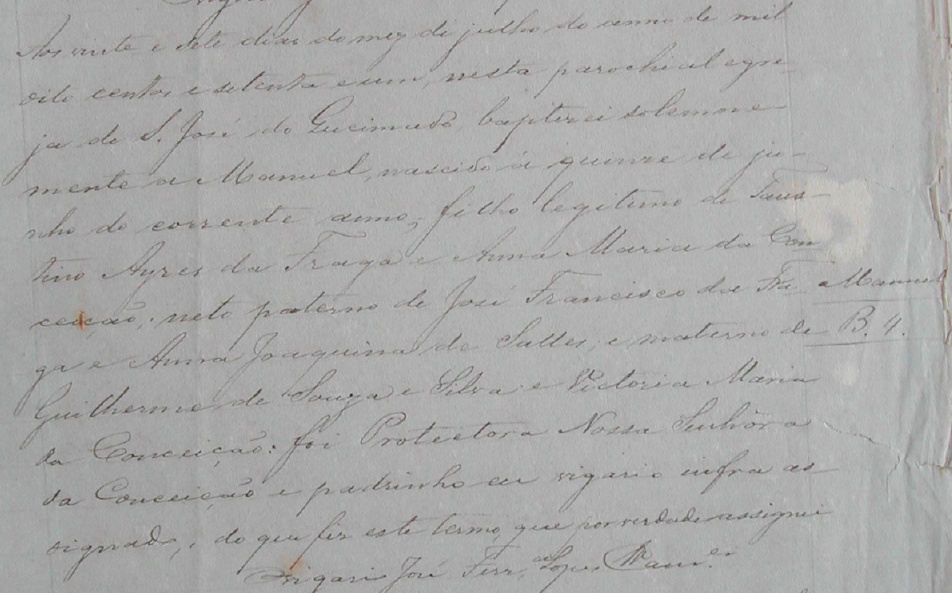 Aos vinte e sete dias do mez de julho do anno de mil
oito centos e setenta e um, nesta parochial egre-
ja de S. José do Queimado, baptizei solemne
mente a Manuel, nascido á quinze de ju-
nho do corrente anno, filho legitimo de Faus-
tino Ayres da Fraga e Anna Maria da Con
ceição; neto paterno de José Francisco da Fra
Manuel
ga e Anna Joaquina de Salles, e materno de
B. 4.
Guilherme de Souza e Silva e Victoria Maria
da Conceição: foi Protectora Nossa Senhora
da Conceição e padrinho eu vigario infra as
signado, do que fiz este termo, que por verdade assignei
Vigario José Ferr.ª Lopes